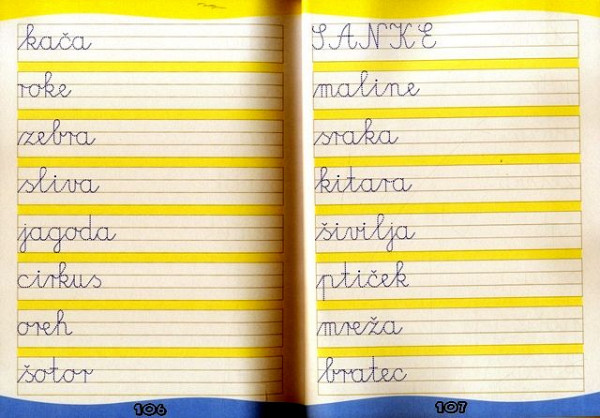 kača
roke
zebra
sliva
jagoda
cirkus
oreh
šotor
106
SANKE
maline
sraka
kitara
šivilja
ptiček
mreža
bratec
107